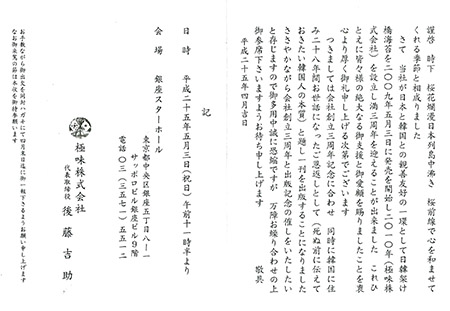 謹啓 時下 桜花爛漫日本列島中沸き 桜前線で心を和ませて
くれる季節と相成りました
さて 当社が日本と韓国との親善友好の一環として日韓架け
橋海苔を二〇〇九年五月三日に発売を開始し二〇一〇年(極味株
式会社)を設立し満三周年を迎えることが出来ました これひ
とえに皆々様の絶大なる御支援と御愛顧を賜りましたことを衷
心より厚く御礼申し上げる次第でございます
つきましては会社創立三周年記念に合わせ 同時に韓国に住
み二十八年間お世話になったご恩返しとして(死ぬ前に伝えて
おきたい韓国人の本質)と題し一刊を出版することになりました
ささやかながら会社創立三周年と出版記念の催しをいたしたい
と存じますので御多用中誠に恐縮ですが 万障お繰り合わせの上
御参席下さいますようお待ち申し上げます
敬具
平成二十五年四月吉日
記
日時 平成二十五年五月三日(祝日)午前十一時半より
会場 銀座スターホール
東京都中央区銀座五丁目八ー一
サッポロビル銀座ビル9階
電話〇三(三五七一)五五一二
極味株式会社
代表取締役 後藤吉助
お手数ながら御出欠を同封ハガキにて四月末日迄に御一報下さるようお願い申し上げます
なお御来駕の節は本状を御持参願います